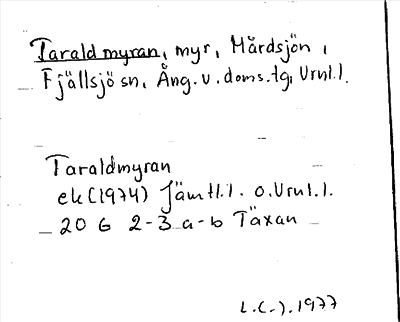 Taraldmyran, myr, Mårdsjön,
Fjällsjö sn, Ång. v. doms.tg, Vrnl.l.
Taraldmyran
ek (1974) Jämtl.l. o. Vrnl.l.
20 G 2-3 a-b Täxan
L.(-).1977